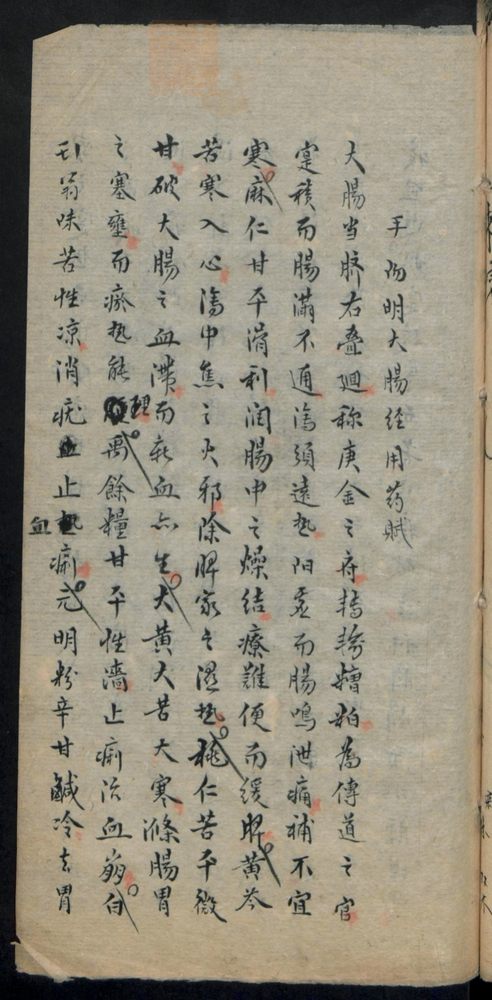 手陽明大腸經用药賦
大腸当脐右叠廻称庚金之府轉輸糟粕為傳道之官
寔積而腸滿不通瀉須遠热阳虗而腸鳴泄痛補不宜
寒麻仁甘平滑利润腸中之燥结療難便而緩脾黄芩
苦寒入心瀉中焦之火邪除脾家之湿热桃仁苦平微
甘破大腸之血滯而新血亦生大黄大苦大寒滌腸胃
之塞壅而瘀热能理禹餘糧甘平性濇止痢治血崩白
头翁味苦性凉消疣止血痢元明粉辛甘鹹冷去胃